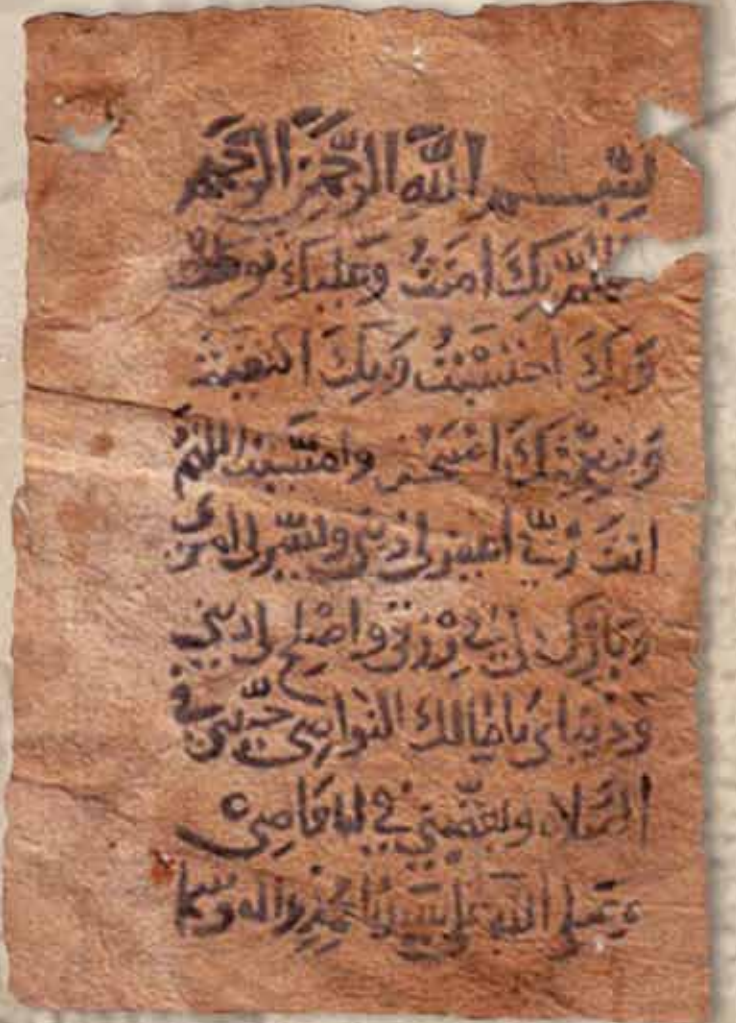 بِسْمِ اللَّهِ الرَّحْمَنِ الرَّحِيمِ
اللهم بِكَ امَنْتُ وَعَليكَ توكلت
وَبِكَ
وَبِنِعْمَتِكَ اصْبَحْتُ وامْسَيْتُ اللهُمَّ
انتَ رَبِّي اغفر لي ذنبي ويَسِّر لي امري
وَبَارِكْ لي في رِزْقي واصْلِح لي ديني
وَدُنياي يا مالك النواصي حَبِّبني في
الصَّلاه وبَغِّضني في المعاصي
وصلى الله على سَيِّدنا مُحمد واله وسَلم